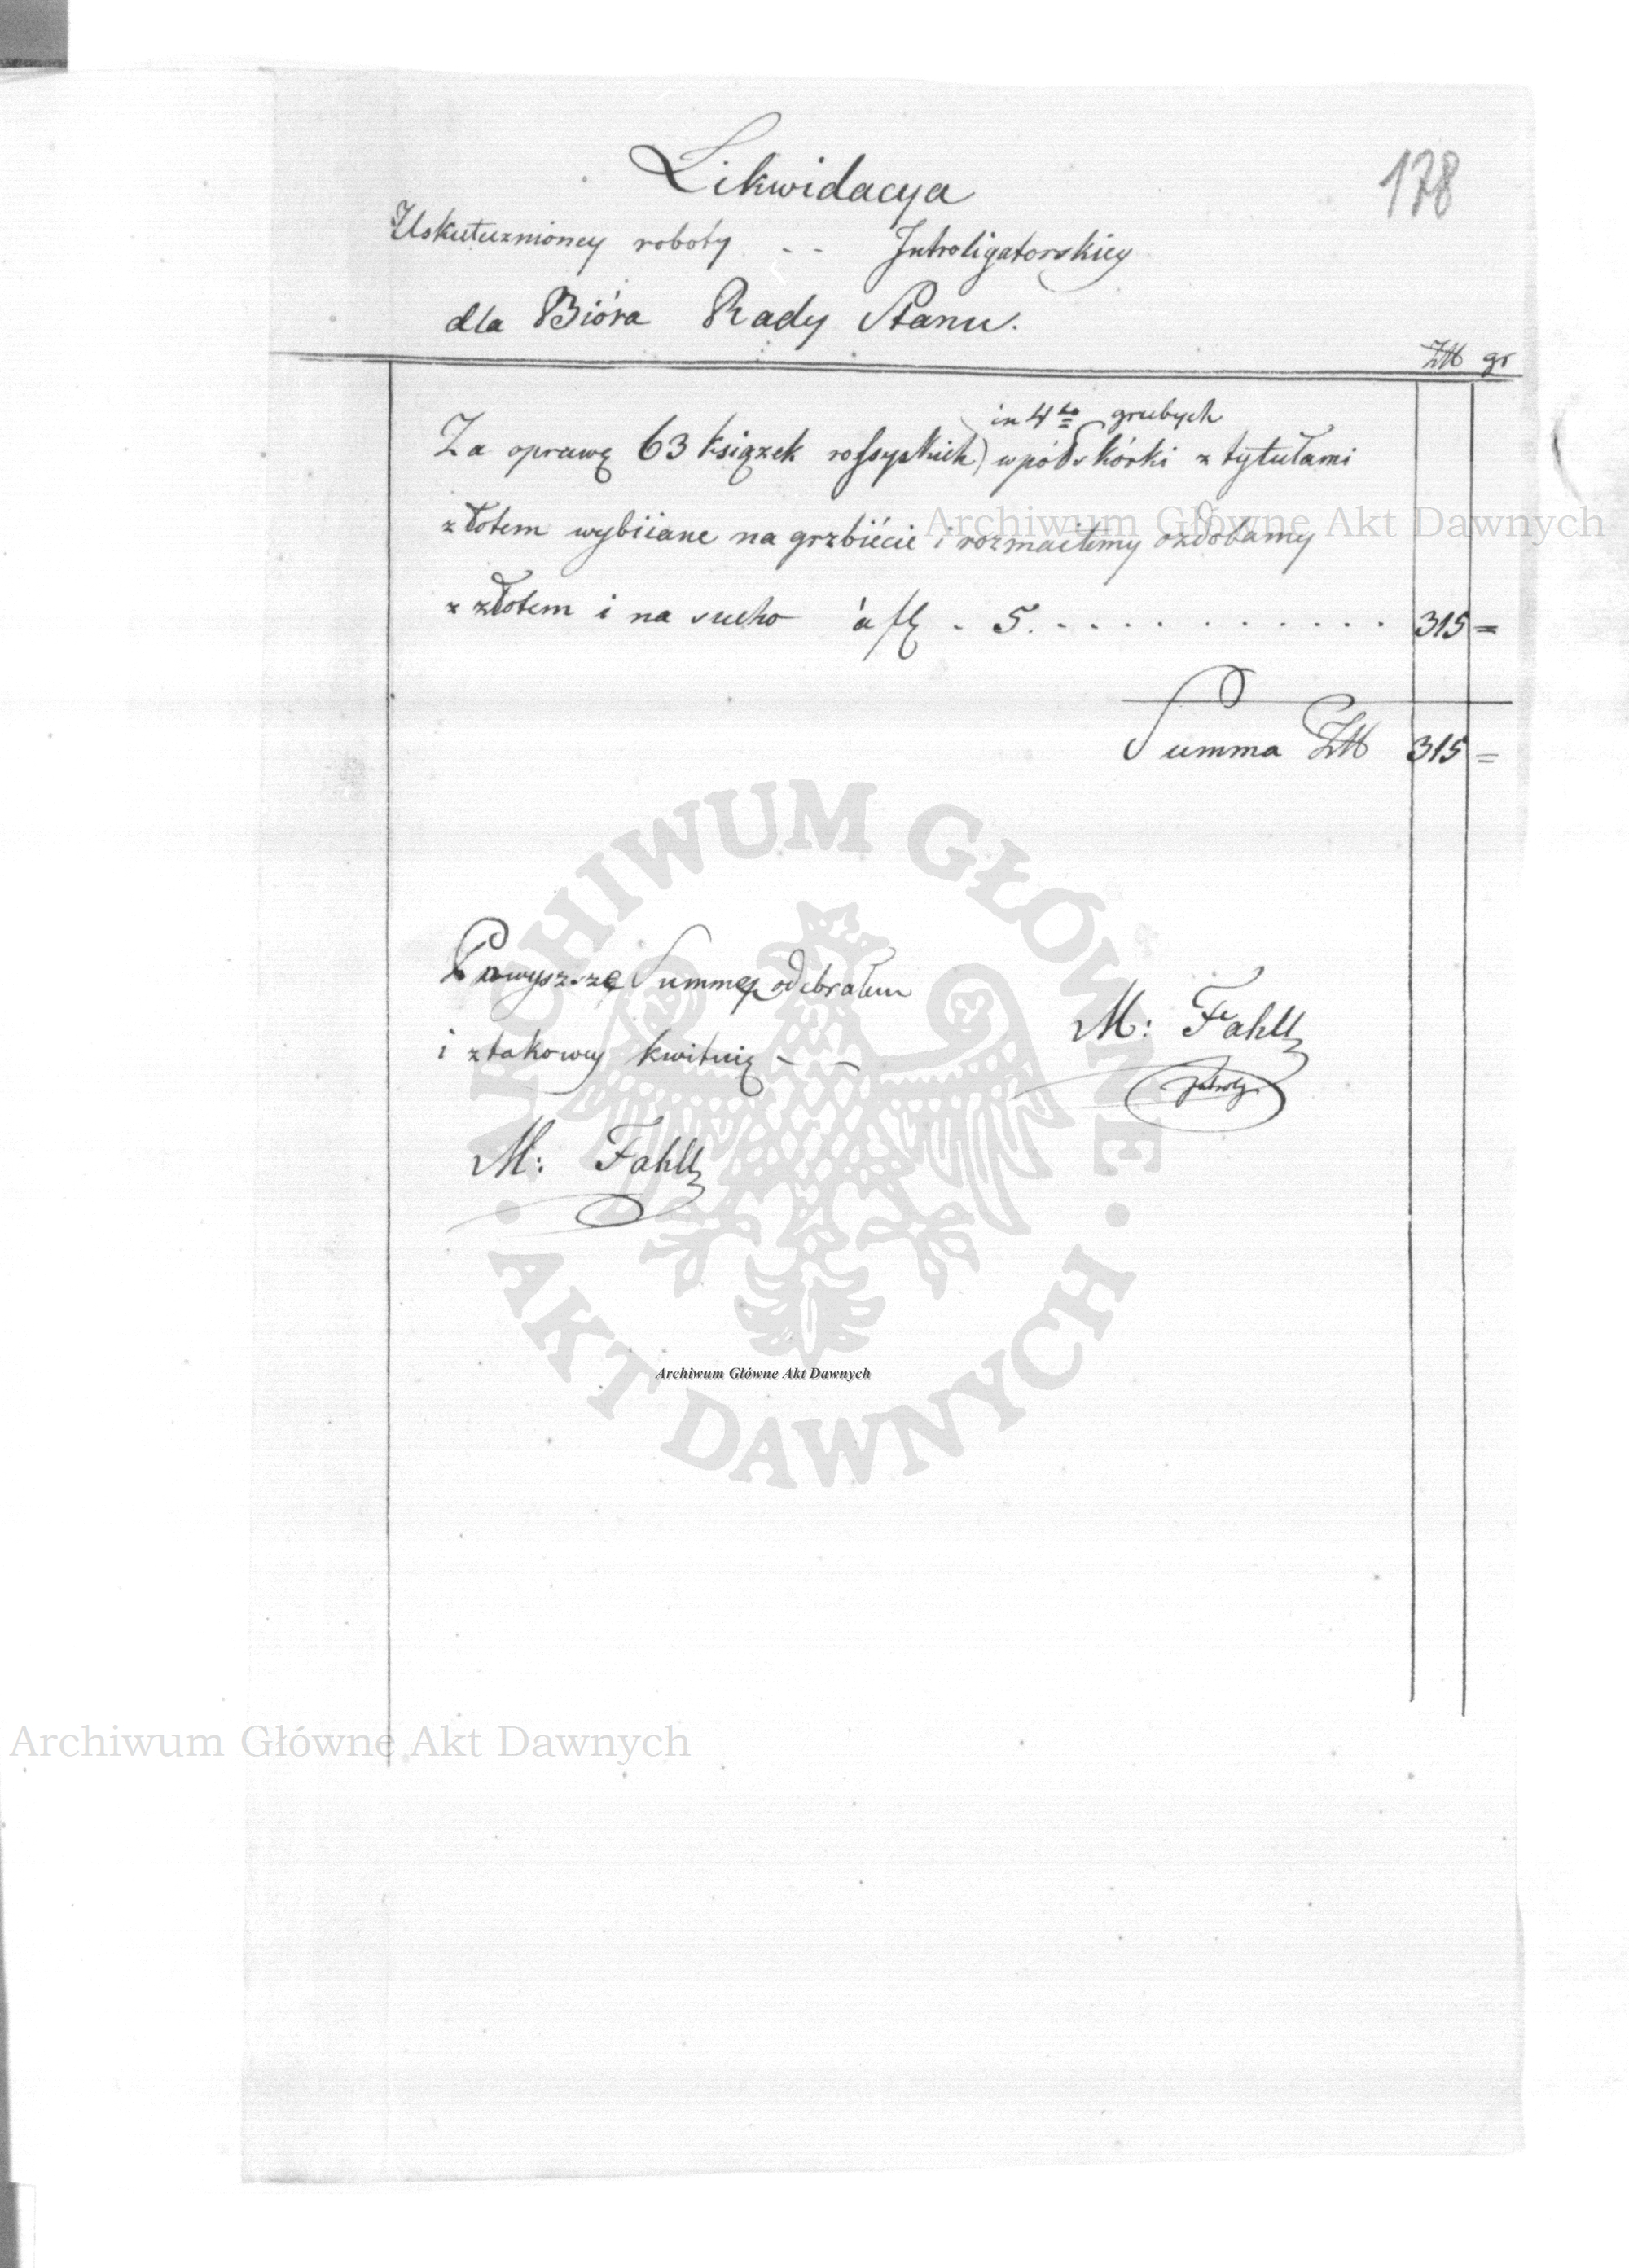 178
Likwidacya
Uskutecznioney roboty - - Jntroligatorskiey
dla Bióra Rady Stanu.
Złł gr
in 4to grubych
Za oprawę 63 ksiązek rossyskich) wpółskórki z tytułami
złotem wybiiane na grzbiécie i rozmaitemy ozdobamy
z złotem i na sucho à fl - 5. - - - . . . . . . . . . 315 =
Summa Złł 315 =
Powyszszę Summę odebrałem
i ztakowey kwituię - -
M: Fahll
Jntrolg
M: Fahll
Archiwum Główne Akt Dawnych
Archiwum Główne Akt Dawnych
ARCHIWUM GŁÓWNE · AKT DAWNYCH ·
Archiwum Główne Akt Dawnych